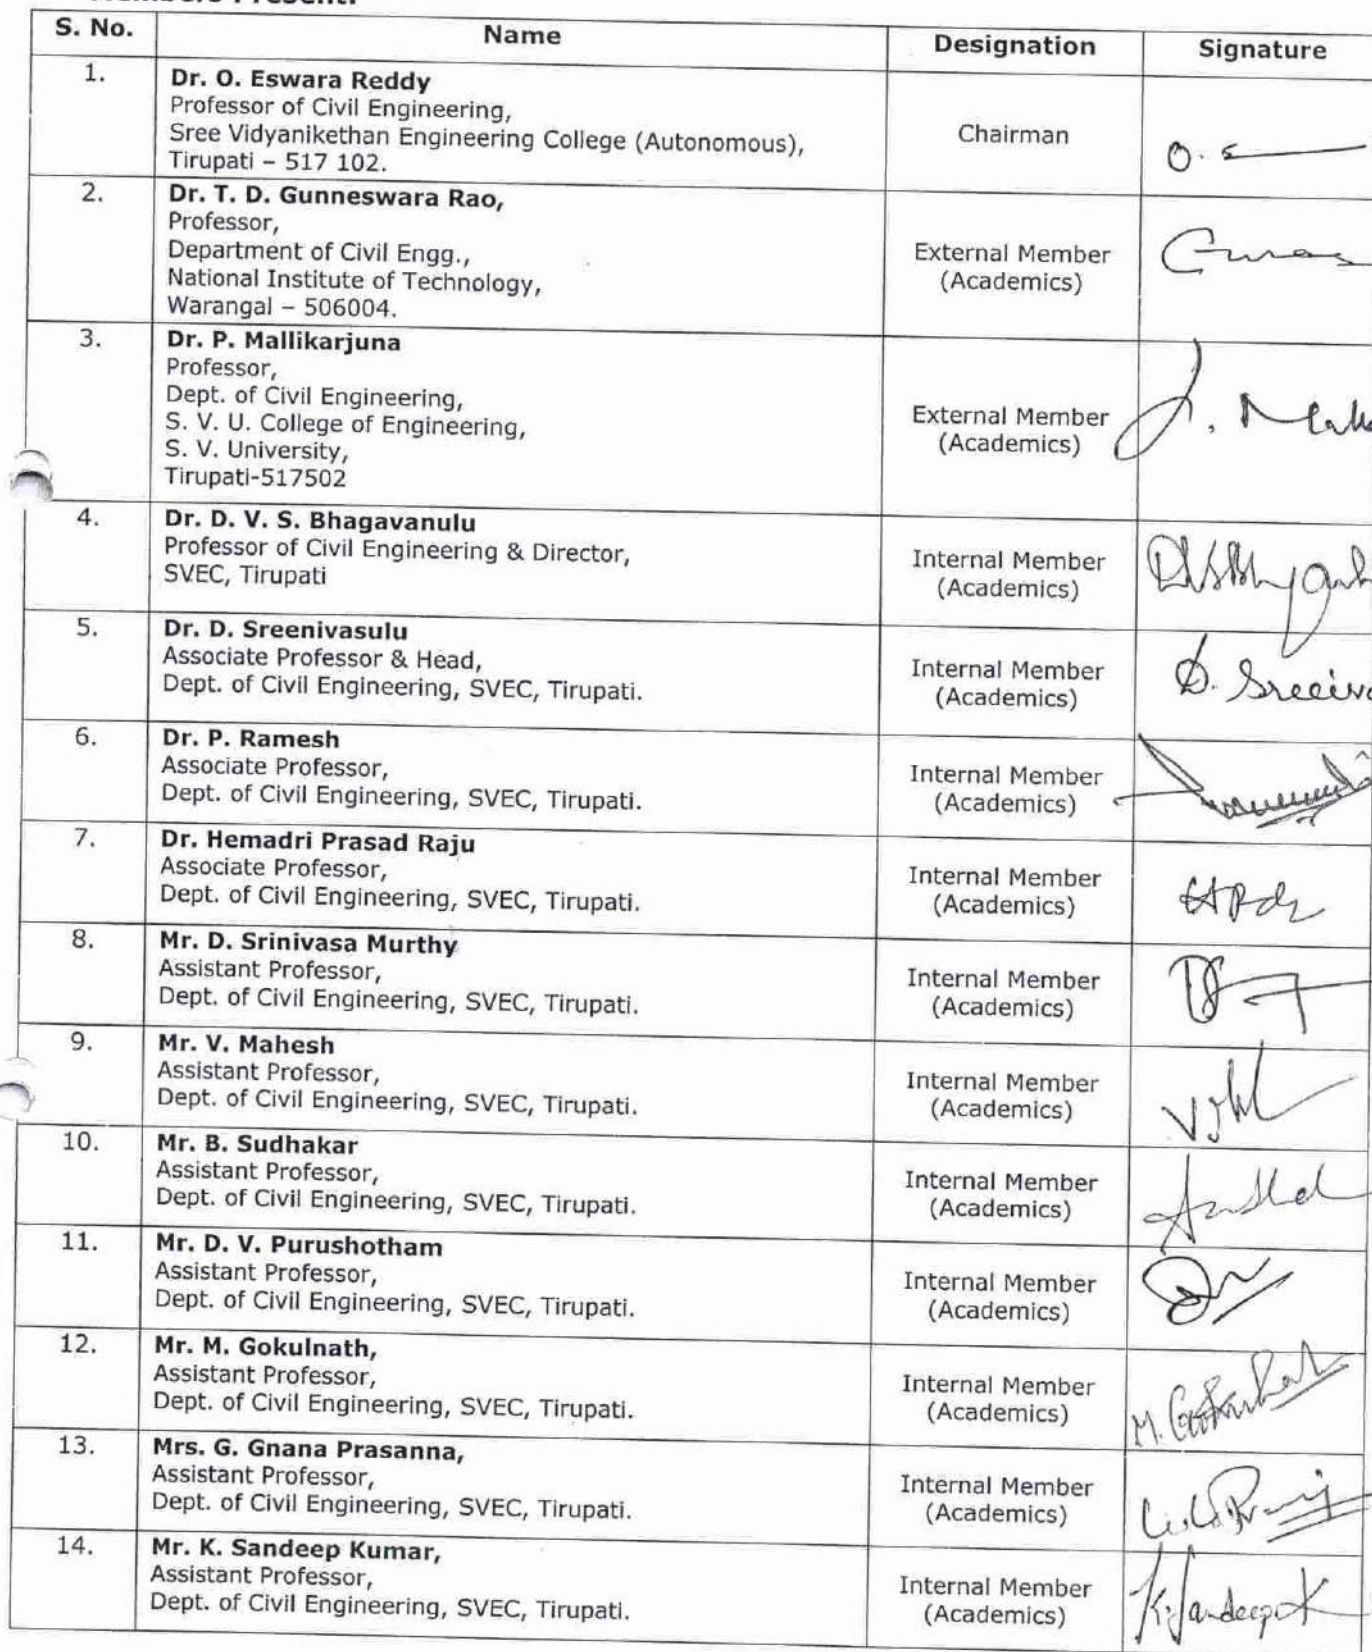 Members Present:
S. No. Name Designation Signature
1. Dr. O. Eswara Reddy
Professor of Civil Engineering,
Sree Vidyanikethan Engineering College (Autonomous),
Tirupati – 517 102.
Chairman
2. Dr. T. D. Gunneswara Rao,
Professor,
Department of Civil Engg.,
National Institute of Technology,
Warangal – 506004.
External Member
(Academics)
3. Dr. P. Mallikarjuna
Professor,
Dept. of Civil Engineering,
S. V. U. College of Engineering,
S. V. University,
Tirupati-517502
External Member
(Academics)
4. Dr. D. V. S. Bhagavanulu
Professor of Civil Engineering & Director,
SVEC, Tirupati
Internal Member
(Academics)
5. Dr. D. Sreenivasulu
Associate Professor & Head,
Dept. of Civil Engineering, SVEC, Tirupati.
Internal Member
(Academics)
6. Dr. P. Ramesh
Associate Professor,
Dept. of Civil Engineering, SVEC, Tirupati.
Internal Member
(Academics)
7. Dr. Hemadri Prasad Raju
Associate Professor,
Dept. of Civil Engineering, SVEC, Tirupati.
Internal Member
(Academics)
8. Mr. D. Srinivasa Murthy
Assistant Professor,
Dept. of Civil Engineering, SVEC, Tirupati.
Internal Member
(Academics)
9. Mr. V. Mahesh
Assistant Professor,
Dept. of Civil Engineering, SVEC, Tirupati.
Internal Member
(Academics)
10. Mr. B. Sudhakar
Assistant Professor,
Dept. of Civil Engineering, SVEC, Tirupati.
Internal Member
(Academics)
11. Mr. D. V. Purushotham
Assistant Professor,
Dept. of Civil Engineering, SVEC, Tirupati.
Internal Member
(Academics)
12. Mr. M. Gokulnath,
Assistant Professor,
Dept. of Civil Engineering, SVEC, Tirupati.
Internal Member
(Academics)
13. Mrs. G. Gnana Prasanna,
Assistant Professor,
Dept. of Civil Engineering, SVEC, Tirupati.
Internal Member
(Academics)
14. Mr. K. Sandeep Kumar,
Assistant Professor,
Dept. of Civil Engineering, SVEC, Tirupati.
Internal Member
(Academics)